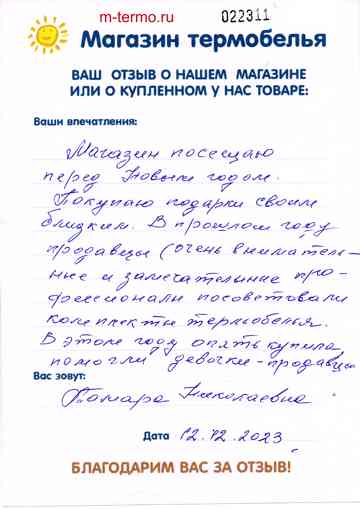 m-termo.ru
022311
Магазин термобелья
ВАШ ОТЗЫВ О НАШЕМ МАГАЗИНЕ
ИЛИ О КУПЛЕННОМ У НАС ТОВАРЕ:
Ваши впечатления:
Магазин посещаю
перед Новым годом.
Покупаю подарки своим
близким. В прошлом году
продавцы (очень вниматель-
ные и замечательные про-
фессионалы посоветовали
комплекты термобелья.
В этом году опять купила
помогли девочки-продавцы
Вас зовут:
Тамара Николаевна
Дата 12.12.2023
БЛАГОДАРИМ ВАС ЗА ОТЗЫВ!